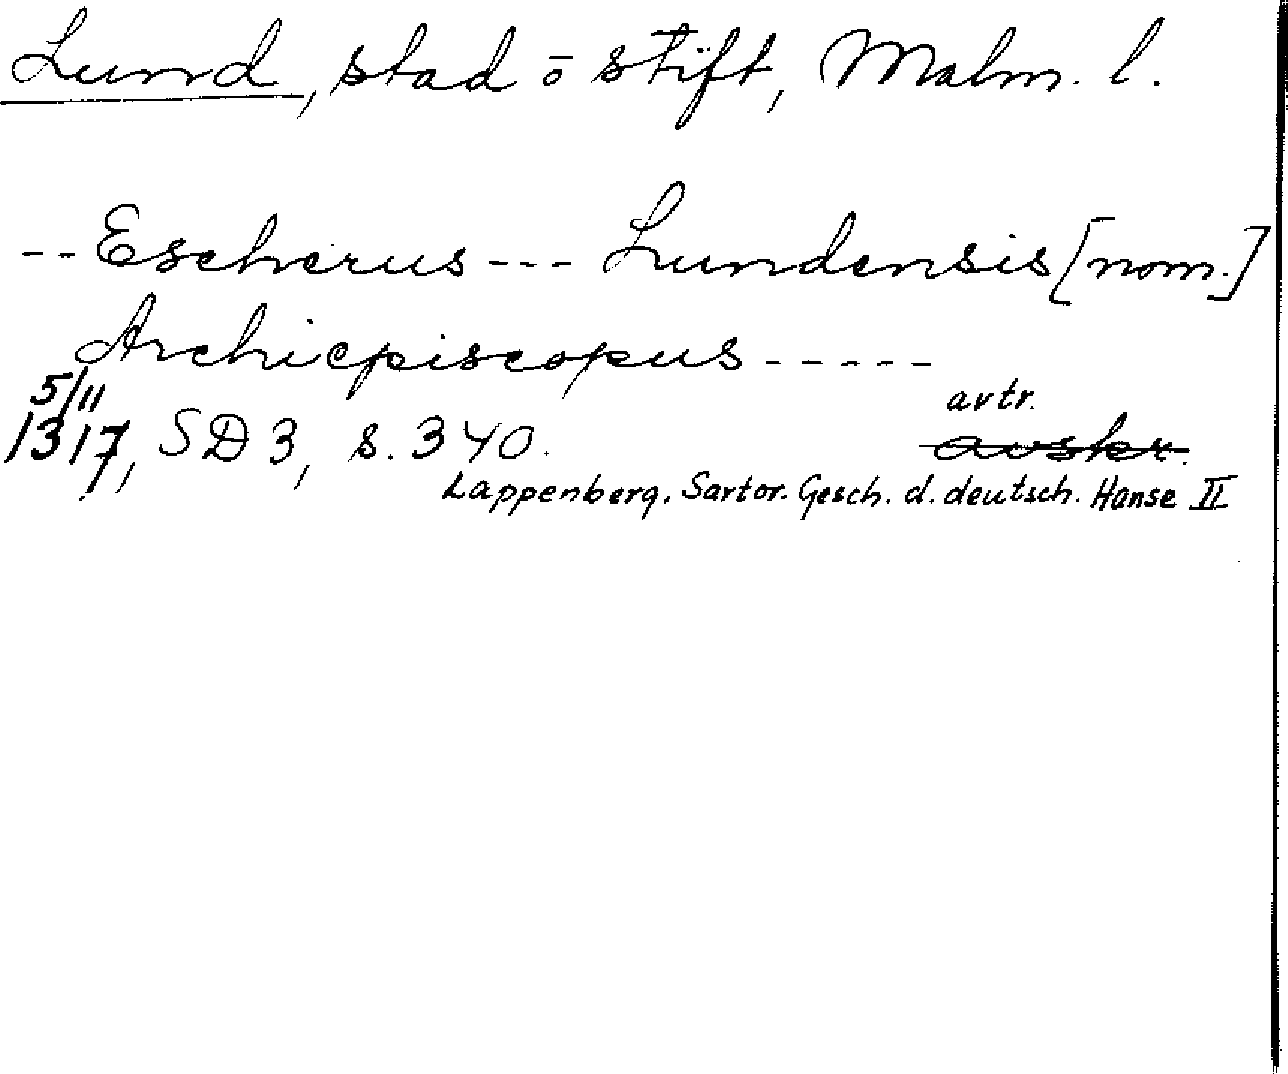 Lund, stad ō stift, Malm. l.
--Escherus--- Lundensis [nom.]
Archiepiscopus-----
5/11
1317, SD 3, s. 340.
avtr.
avskr.
Lappenberg, Sartor. Gesch. d. deutsch. Hanse II